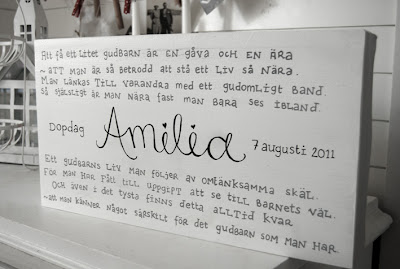 Att få ett litet gudbarn är en gåva och en ära
~ att man är så betrodd att stå ett liv så nära.
Man länkas till varandra med ett gudomligt band.
så själsligt är man nära fast man bara ses ibland.
Dopdag Amilia 7 augusti 2011
Ett gudbarns liv man följer av omtänksamma skäl
för man har fått till uppgift att se till barnets väl.
Och även i det tysta finns detta alltid kvar
~ att man känner något särskilt för det gudbarn som man har.